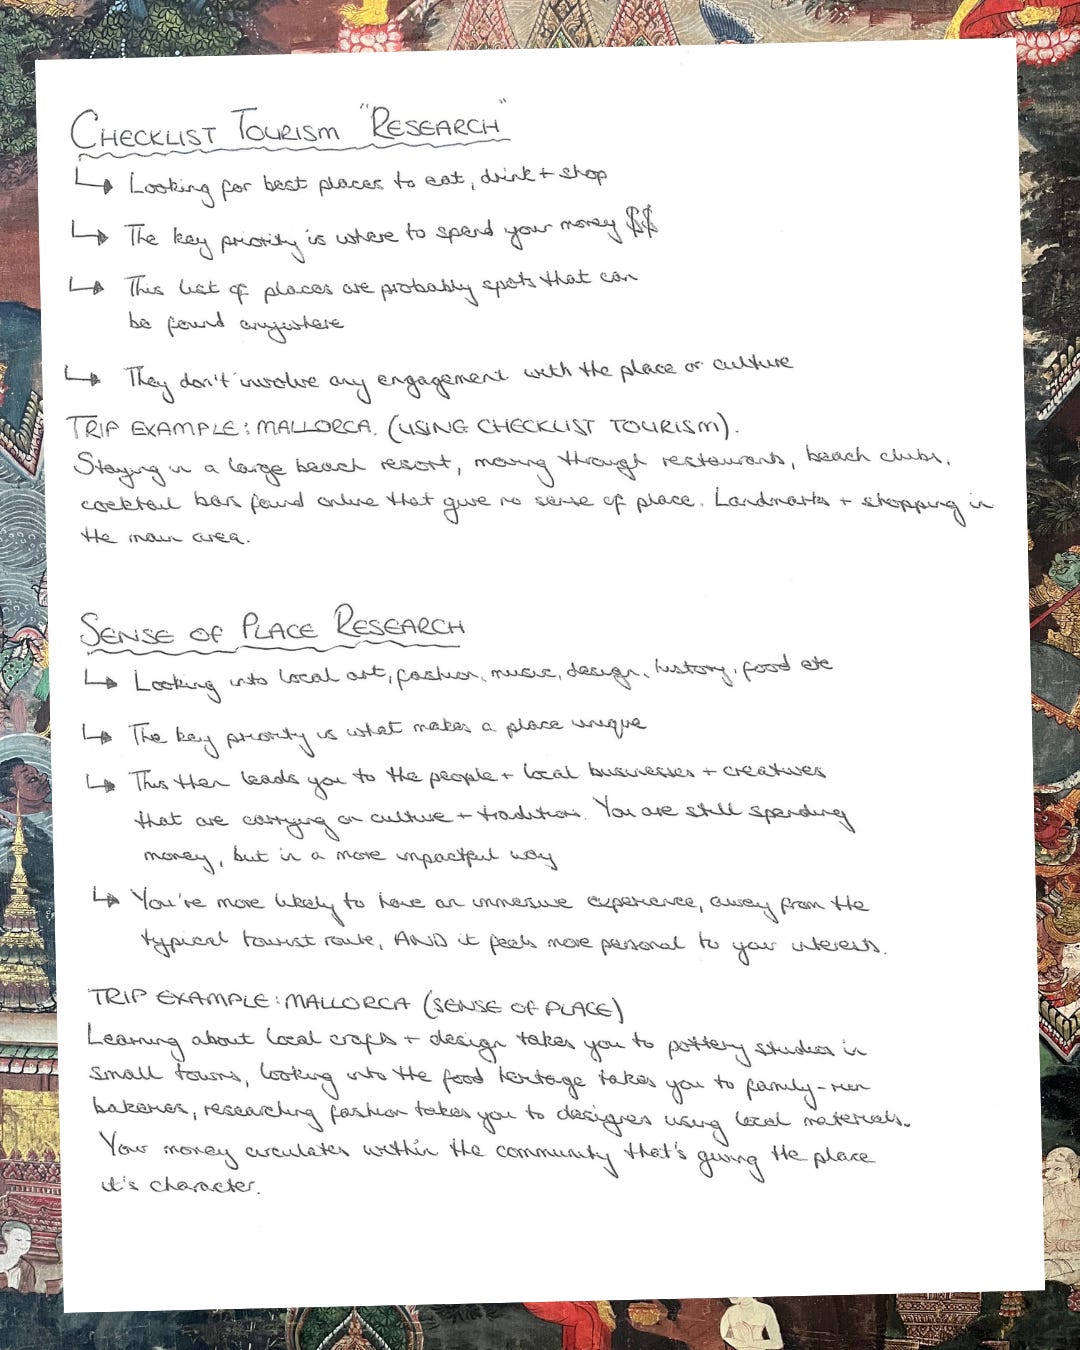 CHECKLIST TOURISM "RESEARCH"
↳ Looking for best places to eat, drink + shop
↳ The key priority is where to spend your money $$
↳ This list of places are probably spots that can
be found anywhere
↳ They don't involve any engagement with the place or culture
TRIP EXAMPLE: MALLORCA. (USING CHECKLIST TOURISM).
Staying in a large beach resort, moving through restaurants, beach clubs,
cocktail bars found online that give no sense of place. Landmarks + shopping in
the main area.
SENSE OF PLACE RESEARCH
↳ Looking into local art, fashion, music, design, history, food etc
↳ The key priority is what makes a place unique
↳ This then leads you to the people + local businesses + creatives
that are carrying on culture + traditions. You are still spending
money, but in a more impactful way
↳ You're more likely to have an immersive experience, away from the
typical tourist route, AND it feels more personal to your interests.
TRIP EXAMPLE: MALLORCA (SENSE OF PLACE)
Learning about local crafts + design takes you to pottery studios in
small towns, looking into the food heritage takes you to family-run
bakeries, researching fashion takes you to designers using local materials.
Your money circulates within the community that's giving the place
it's character.